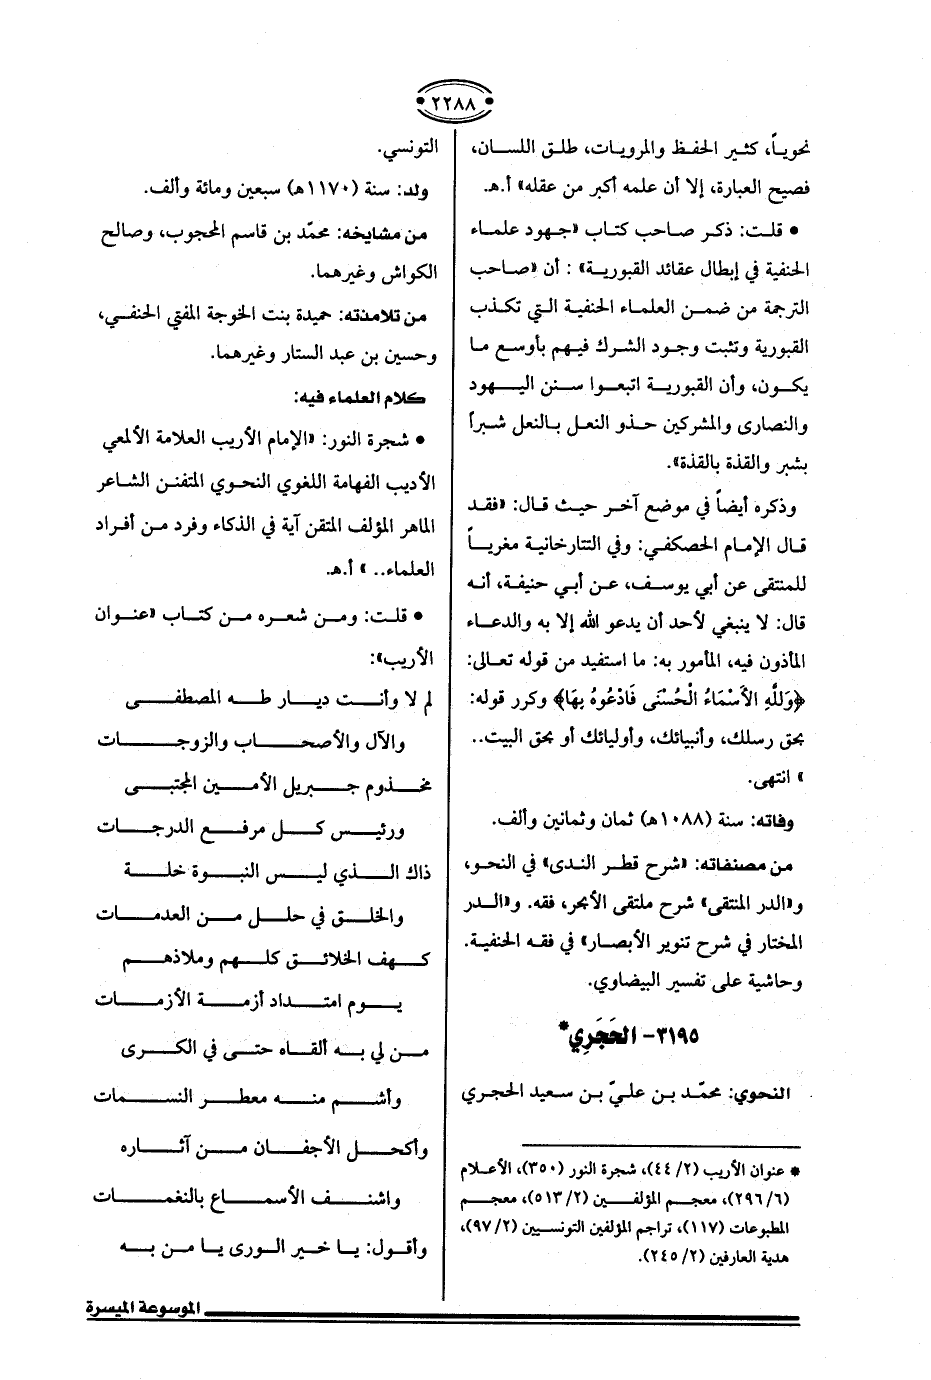 ٢٢٨٨
نحوياً، كثير الحفظ والمرويات، طلق اللسان،
فصيح العبارة، إلا أن علمه أكبر من عقله» أ.هـ.
• قلت: ذكر صاحب كتاب «جهود علماء
الحنفية في إبطال عقائد القبورية» : أن «صاحب
الترجمة من ضمن العلماء الحنفية التي تكذب
القبورية وتثبت وجود الشرك فيهم بأوسع ما
يكون، وأن القبورية اتبعوا سنن اليهود
والنصارى والمشركين حذو النعل بالنعل شبراً
بشبر والقذة بالقذة».
وذكره أيضاً في موضع آخر حيث قال: «فقد
قال الإمام الحصكفي: وفي التتارخانية مغرياً
للمنتقى عن أبي يوسف، عن أبي حنيفة، أنه
قال: لا ينبغي لأحد أن يدعو الله إلا به والدعاء
المأذون فيه، المأمور به: ما استفيد من قوله تعالى:
﴿وَللَّهِ الأَسْمَاءُ الْحُسْنَى فَادْعُوهُ بِهَا﴾ وكرر قوله:
بحق رسلك، وأنبيائك، وأوليائك أو بحق البيت..
» انتهى.
وفاته: سنة (١٠٨٨هـ) ثمان وثمانين وألف.
من مصنفاته: «شرح قطر الندى» في النحو،
و«الدر المنتقى» شرح ملتقى الأبحر، فقه. و«الدر
المختار في شرح تنوير الأبصار» في فقه الحنفية.
وحاشية على تفسير البيضاوي.
٣١٩٥- الحَجَرِي*
النحوي: محمّد بن عليّ بن سعيد الحجري
* عنوان الأريب (٢/ ٤٤)، شجرة النور (٣٥٠)، الأعلام
(٦/ ٢٩٦)، معجم المؤلفين (٢/ ٥١٣)، معجم
المطبوعات (١١٧)، تراجم المؤلفين التونسيين (٢/ ٩٧)،
هدية العارفين (٢/ ٢٤٥).
التونسي.
ولد: سنة (١١٧٠هـ) سبعين ومائة وألف.
من مشايخه: محمّد بن قاسم المحجوب، وصالح
الكواش وغيرهما.
من تلامذته: حميدة بنت الخوجة المفتي الحنفي،
وحسين بن عبد الستار وغيرهما.
كلام العلماء فيه:
• شجرة النور: «الإمام الأريب العلامة الألمعي
الأديب الفهامة اللغوي النحوي المتفنن الشاعر
الماهر المؤلف المتقن آية في الذكاء وفرد من أفراد
العلماء.. » أ.هـ.
• قلت: ومن شعره من كتاب «عنوان
الأريب»:
لم لا وأنت ديار طه المصطفى
والآل والأصحاب والزوجات
مخدوم جبريل الأمين المجتبى
ورئيس كل مرفع الدرجات
ذاك الذي ليس النبوة خلة
والخلق في حلل من العدمات
كهف الخلائق كلهم وملاذهم
يوم امتداد أزمة الأزمات
من لي به ألقاه حتى في الكرى
وأشم منه معطر النسمات
وأكحل الأجفان من آثاره
واشنف الأسماع بالنغمات
وأقول: يا خير الورى يا من به
الموسوعة الميسرة